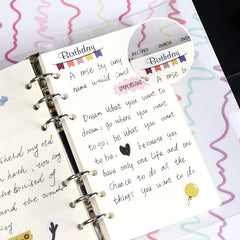 Birthday
A rose by any
name would smel
IMPORTANT
Birthday
A rose by
Dream what you want to
dream; go where you want
to go; be what you want
to be, because you
have only one life and one
chance to do all the
things you want to do.
held my old
hath, too
who housed of
and the